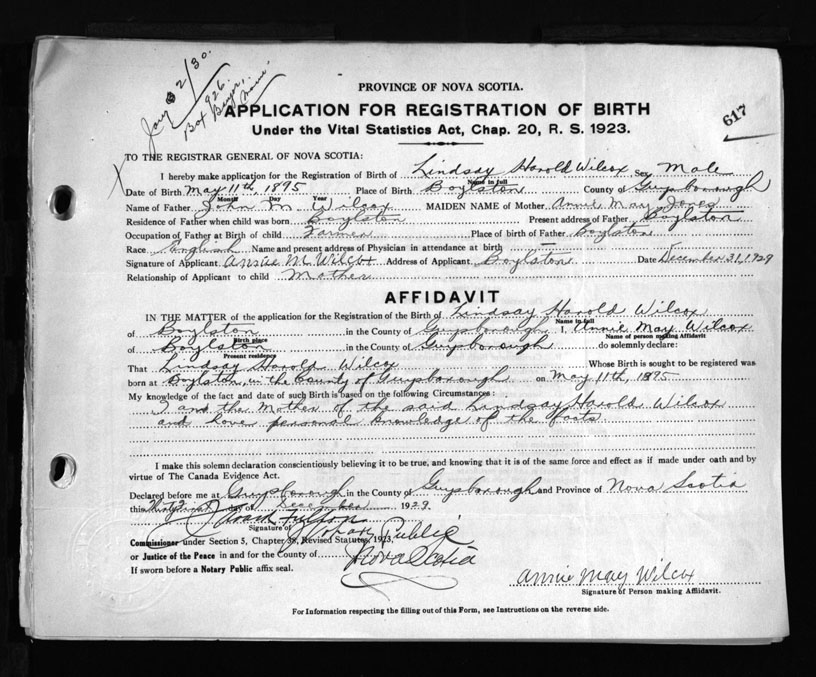 Jany 2/30.
Box 926.
PROVINCE OF NOVA SCOTIA.
APPLICATION FOR REGISTRATION OF BIRTH
617
Under the Vital Statistics Act, Chap. 20, R. S. 1923.
TO THE REGISTRAR GENERAL OF NOVA SCOTIA:
X I hereby make application for the Registration of Birth of Lindsay Harold Wilcox Sex Male
Name in full
Date of Birth May 11th, 1895 Place of Birth Boylston County of Guysborough
Month Day Year
Name of Father John M Wilcox MAIDEN NAME of Mother Annie May Jones
Residence of Father when child was born Boylston Present address of Father Boylston
Occupation of Father at Birth of child Farmer Place of birth of Father Boylston
Race English Name and present address of Physician in attendance at birth —
Signature of Applicant Annie M Wilcox Address of Applicant Boylston Date December 31, 1929
Relationship of Applicant to child Mother
AFFIDAVIT
IN THE MATTER of the application for the Registration of the Birth of Lindsay Harold Wilcox
Name in full
of Boylston in the County of Guysborough I, Annie May Wilcox
Birth place Name of person making Affidavit
of Boylston in the County of Guysborough do solemnly declare:
Present residence
That Lindsay Harold Wilcox Whose Birth is sought to be registered was
born at Boylston, in the County of Guysborough on May 11th, 1895
My knowledge of the fact and date of such Birth is based on the following Circumstances:
I and the Mother of the said Lindsay Harold Wilcox
and have personal knowledge of the facts.
I make this solemn declaration conscientiously believing it to be true, and knowing that it is of the same force and effect as if made under oath and by
virtue of The Canada Evidence Act.
Declared before me at Guysborough in the County of Guysborough and Province of Nova Scotia
this Thirty First day of December 1929
Signature of
Commissioner under Section 5, Chapter 38, Revised Statutes, 1923,
Notary Public
or Justice of the Peace in and for the County of Nova Scotia
If sworn before a Notary Public affix seal.
Annie May Wilcox
Signature of Person making Affidavit.
For Information respecting the filling out of this Form, see Instructions on the reverse side.